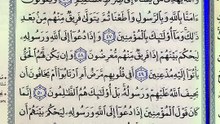 وَيَقُولُونَ
ءَامَنَّا بِٱللَّهِ وَبِٱلرَّسُولِ وَأَطَعْنَا ثُمَّ يَتَوَلَّىٰ فَرِيقٌ مِّنْهُم مِّنۢ بَعْدِ
ذَٰلِكَ وَمَآ أُو۟لَٰٓئِكَ بِٱلْمُؤْمِنِينَ ٤٧ وَإِذَا دُعُوٓا۟ إِلَى ٱللَّهِ وَرَسُولِهِۦ
لِيَحْكُمَ بَيْنَهُمْ إِذَا فَرِيقٌ مِّنْهُم مُّعْرِضُونَ ٤٨ وَإِن يَكُن لَّهُمُ ٱلْحَقُّ
يَأْتُوٓا۟ إِلَيْهِ مُذْعِنِينَ ٤٩ أَفِى قُلُوبِهِم مَّرَضٌ أَمِ ٱرْتَابُوٓا۟ أَمْ يَخَافُونَ أَن
يَحِيفَ ٱللَّهُ عَلَيْهِمْ وَرَسُولُهُۥ بَلْ أُو۟لَٰٓئِكَ هُمُ ٱلظَّٰلِمُونَ ٥٠ إِنَّمَا
كَانَ قَوْلَ ٱلْمُؤْمِنِينَ إِذَا دُعُوٓا۟ إِلَى ٱللَّهِ وَرَسُولِهِۦ لِيَحْكُمَ بَيْنَهُمْ أَن